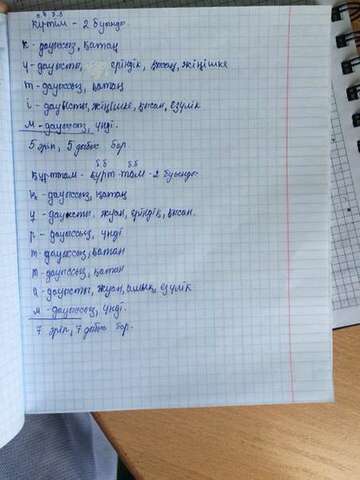 т.б т.б
күтем - 2 буынды.
к - дауыссыз, қатаң
ү - дауысты, еріндік, қысаң, жіңішке
т - дауыссыз, қатаң
і - дауысты, жіңішке, қысаң, езулік
м - дауыссыз, үнді.
5 әріп, 5 дыбыс бар.
б.б б.б
Құрттам - құрт-там - 2 буынды
қ - дауыссыз, қатаң
ұ - дауысты, жуан, еріндік, қысаң.
р - дауыссыз, үнді
т - дауыссыз, қатаң
т - дауыссыз, қатаң
а - дауысты, жуан, ашық, езулік
м - дауыссыз, үнді.
7 әріп, 7 дыбыс бар.